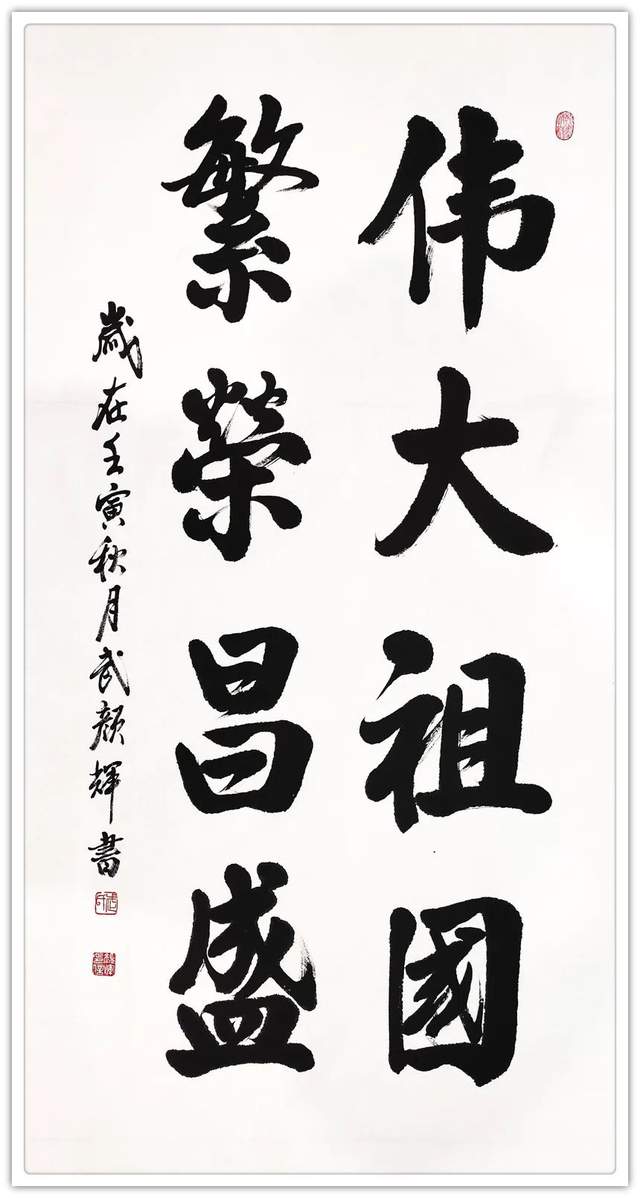 伟大祖國
繁榮昌盛
歲在壬寅秋月武顏輝書